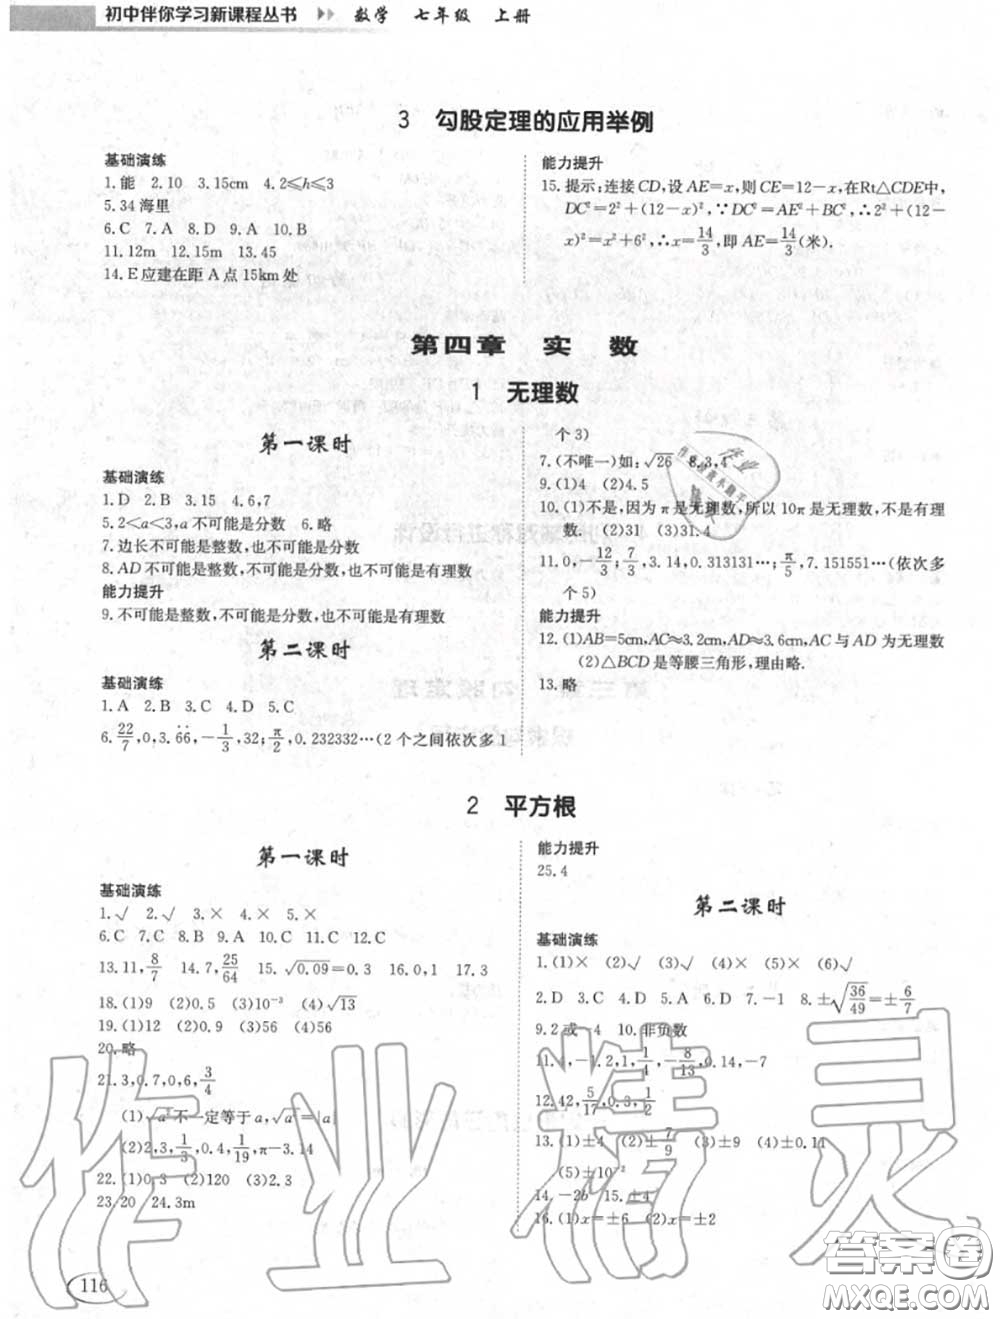 初中伴你学习新课程丛书 数学 七年级 上册
3 勾股定理的应用举例
基础演练
1.能 2.10 3.15cm 4.2≤h≤3
5.34 海里
6.C 7.A 8.D 9.A 10.B
11.12m 12.15m 13.45
14.E应建在距 A 点 15km 处
能力提升
15.提示:连接CD,设 AE=x,则 CE=12-x,在Rt△CDE中,
DC²=2²+(12-x)²,∵DC²=AE²+BC²,∴2²+(12-
x)²=x²+6²,∴x=14/3,即 AE=14/3(米).
第四章 实 数
1 无理数
第一课时
基础演练
1.D 2.B 3.15 4.6,7
5.2<a<3,a 不可能是分数 6.略
7.边长不可能是整数,不可能是分数
8.AD 不可能是整数,不可能是分数,也不可能是有理数
能力提升
9.不可能是整数,不可能是分数,也不可能是有理数
第二课时
基础演练
1.A 2.B 3.B 4.D 5.C
6.22/7,0,3.6̇6̇,-1/3,32;π/2,0.232332…(2 个之间依次多 1
个 3)
7.(不唯一)如:√26 8.3,4
9.(1)4 (2)4.5
10.(1)不是,因为 π 是无理数,所以 10π 是无理数,不是有理
数. (2)31 (3)31.4
11.0,-12/3;7/3,3.14,0.313131…;π/5,7.151551…(依次多
个 5)
能力提升
12.(1)AB=5cm,AC≈3.2cm,AD≈3.6cm,AC 与 AD 为无理数
(2)△BCD 是等腰三角形,理由略.
13.略
2 平方根
第一课时
基础演练
1.√ 2.√ 3.× 4.× 5.×
6.C 7.C 8.B 9.A 10.C 11.C 12.C
13.11,8/7 14.7,25/64 15.√0.09=0.3 16.0,1 17.3
18.(1)9 (2)0.5 (3)10⁻³ (4)√13
19.(1)12 (2)0.9 (3)56 (4)56
20.略
21.3,0.7,0,6,3/4
(1)√a² 不一定等于 a,√a²=|a|
(2)2,3,1/3,0.4,19/150
22.(1)0.3 (2)120 (3)2.3
23.20 24.3m
能力提升
25.4
第二课时
基础演练
1.(1)× (2)√ (3)√ (4)× (5)× (6)√
2.D 3.C 4.D 5.A 6.D 7.-1 8.±√36/49=±6/7
9.2 或 -4 10.非负数
11.4,-1.2,1,1/4,-8/13,0.14,-7
12.42,5/17,0.3,1/2
13.(1)±4 (2)±7/9 (3)±9 (4)±0.11
(5)±10⁻²
14.-2b 15.±4
16.(1)x=±6 (2)x=±2
116
作业精灵
答案圈
MXQE.COM